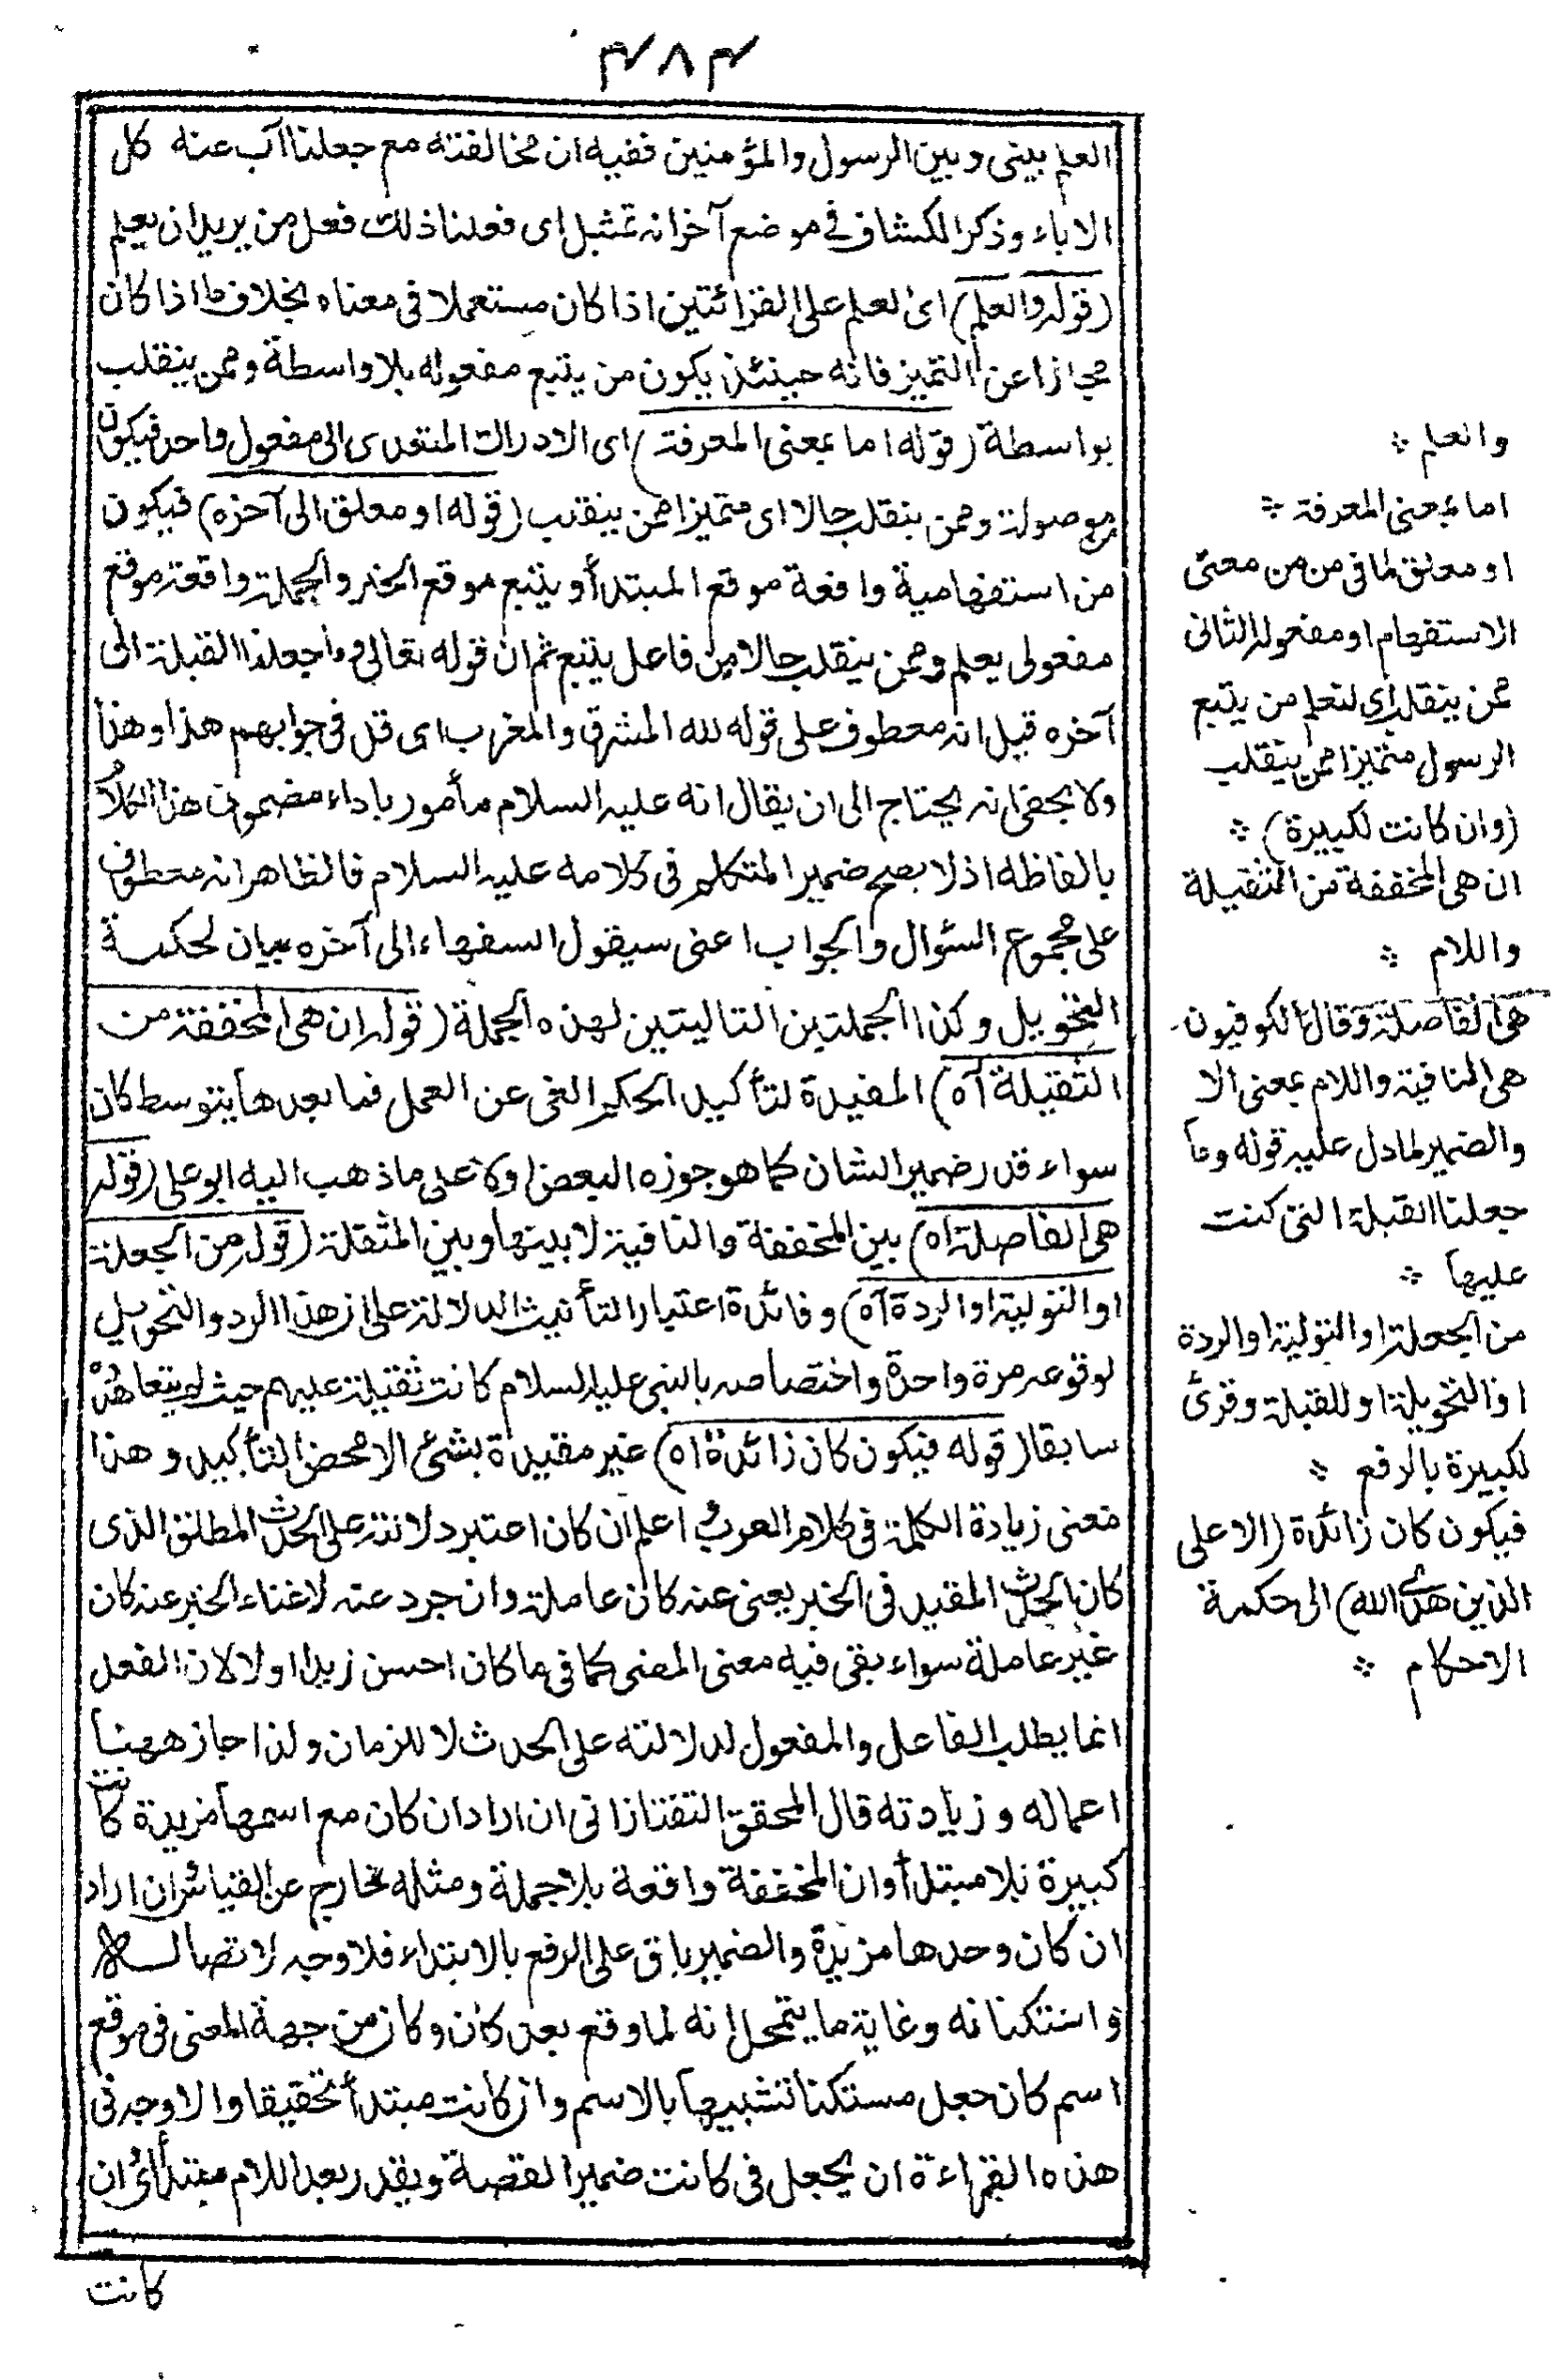 ٣٨٣
العلم بينى وبين الرسول والمؤمنين ففيه ان مخالفته مع جعلنا آب عنه كل
الاباء وذكر الكشاف فى موضع آخر انه تمثيل اى فعلنا ذلك فعل من يريد ان يعلم
(قوله والعلم) اى لعلم على القرائتين اذا كان مستعملا فى معناه بخلاف ما اذا كان
مجازا عن التميز فانه حينئذ يكون من يتبع مفعوله بلا واسطة وممن ينقلب
بواسطة (قوله اما بمعنى المعرفة) اى الادراك المتعدى الى مفعول واحد فيكون
موصولة وممن ينقلب حالا اى متميزا ممن ينقلب (قوله او معلق الى آخره) فيكون
من استفهامية واقعة موقع المبتدأ ويتبع موقع الخبر والجملة واقعة موقع
مفعولى يعلم وممن ينقلب حالا من فاعل يتبع ثم ان قوله تعالى وما جعلنا القبلة الى
آخره قيل انه معطوف على قوله لله المشرق والمغرب اى قل فى جوابهم هذا وهذا
ولا يخفى انه يحتاج الى ان يقال انه عليه السلام مأمور باداء مضمون هذا الكلام
بالفاظه اذ لا يصح ضمير المتكلم فى كلامه عليه السلام فالظاهر انه معطوف
على مجموع السؤال والجواب اعنى سيقول السفهاء الى آخره بيان لحكمة
التحويل وكذا الجملتين التاليتين لهذه الجملة (قوله ان هى المخففة من
الثقيلة آه) المفيدة لتأكيد الحكم الغى عن العمل فما بعدها بتوسط كان
سواء قدر ضمير الشان كما هو جوزه البعض اولا على ما ذهب اليه ابو على (قوله
هى الفاصلة اه) بين المخففة والنافية لا بينها وبين المثقلة (قوله من الجعلة
او التولية او الردة آه) وفائدة اعتبار التأنيث الدلالة على ان هذا الرد والتحويل
لوقوعه مرة واحدة واختصاصه بالنبى عليه السلام كانت ثقيلة عليهم حيث لم يتعاهدوه
سابقا (قوله فيكون كان زائدة اه) غير مفيدة بشئ الا محض التأكيد وهذا
معنى زيادة الكلمة فى كلام العرب اعلم ان كان اعتبر دلالته على الحدث المطلق الذى
كان الحدث المقيد فى الخبر يعنى عنه كان عاملة وان جرد عنه لاغناء الخبر عنه كان
غير عاملة سواء بقى فيه معنى المضى كما فى ما كان احسن زيدا اولا لان الفعل
انما يطلب الفاعل والمفعول لدلالته على الحدث لا للزمان ولذا جاز ههنا
اعماله وزيادته قال المحقق التفتازانى ان اراد ان كان مع اسمها مزيدة كانت
كبيرة بلا مبتدأ وان المخففة واقعة بلا جملة ومثله خارج عن القياس وان اراد
ان كان وحدها مزيدة والضمير باق على الرفع بالابتداء فلا وجه لاتصاله
واستكنانه وغاية ما يتمحل انه لما وقع بعد كان وكان من جهة المعنى فى موقع
اسم كان جعل مستكنا تشبيها بالاسم وان كانت مبتدأ تحقيقا والاوجه فى
هذه القراءة ان يجعل فى كانت ضمير القصة ويقدر بعد اللام مبتدأ اى ان
كانت
والعلم
اما بمعنى المعرفة
او معلق لما فى من من معنى
الاستفهام او مفعوله الثانى
ممن ينقلب اى لنعلم من يتبع
الرسول متميزا ممن ينقلب
(وان كانت لكبيرة)
ان هى المخففة من الثقيلة
واللام
هى الفاصلة وقال الكوفيون
هى النافية واللام بمعنى الا
والضمير لما دل عليه قوله وما
جعلنا القبلة التى كنت
عليها
من الجعلة او التولية او الردة
او التحويلة او للقبلة وقرئ
لكبيرة بالرفع
فيكون كان زائدة (الا على
الذين هدى الله) الى حكمة
الاحكام